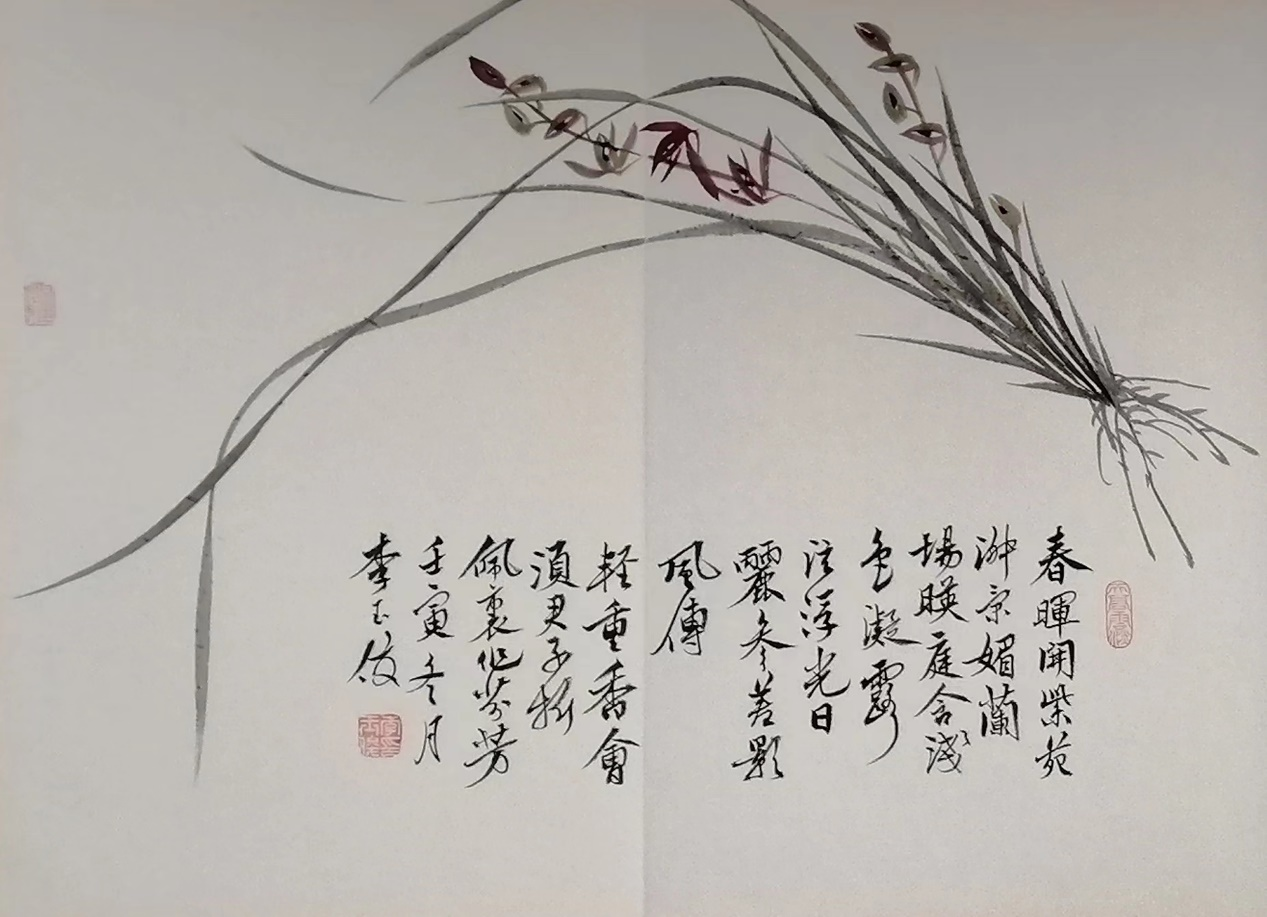 春暉開紫苑
淑景媚蘭
場暎庭含淺
色凝露
泫浮光日
麗參差影
風傳
輕重香會
須君子折
佩裏作芬芳
壬寅冬月
李玉俊